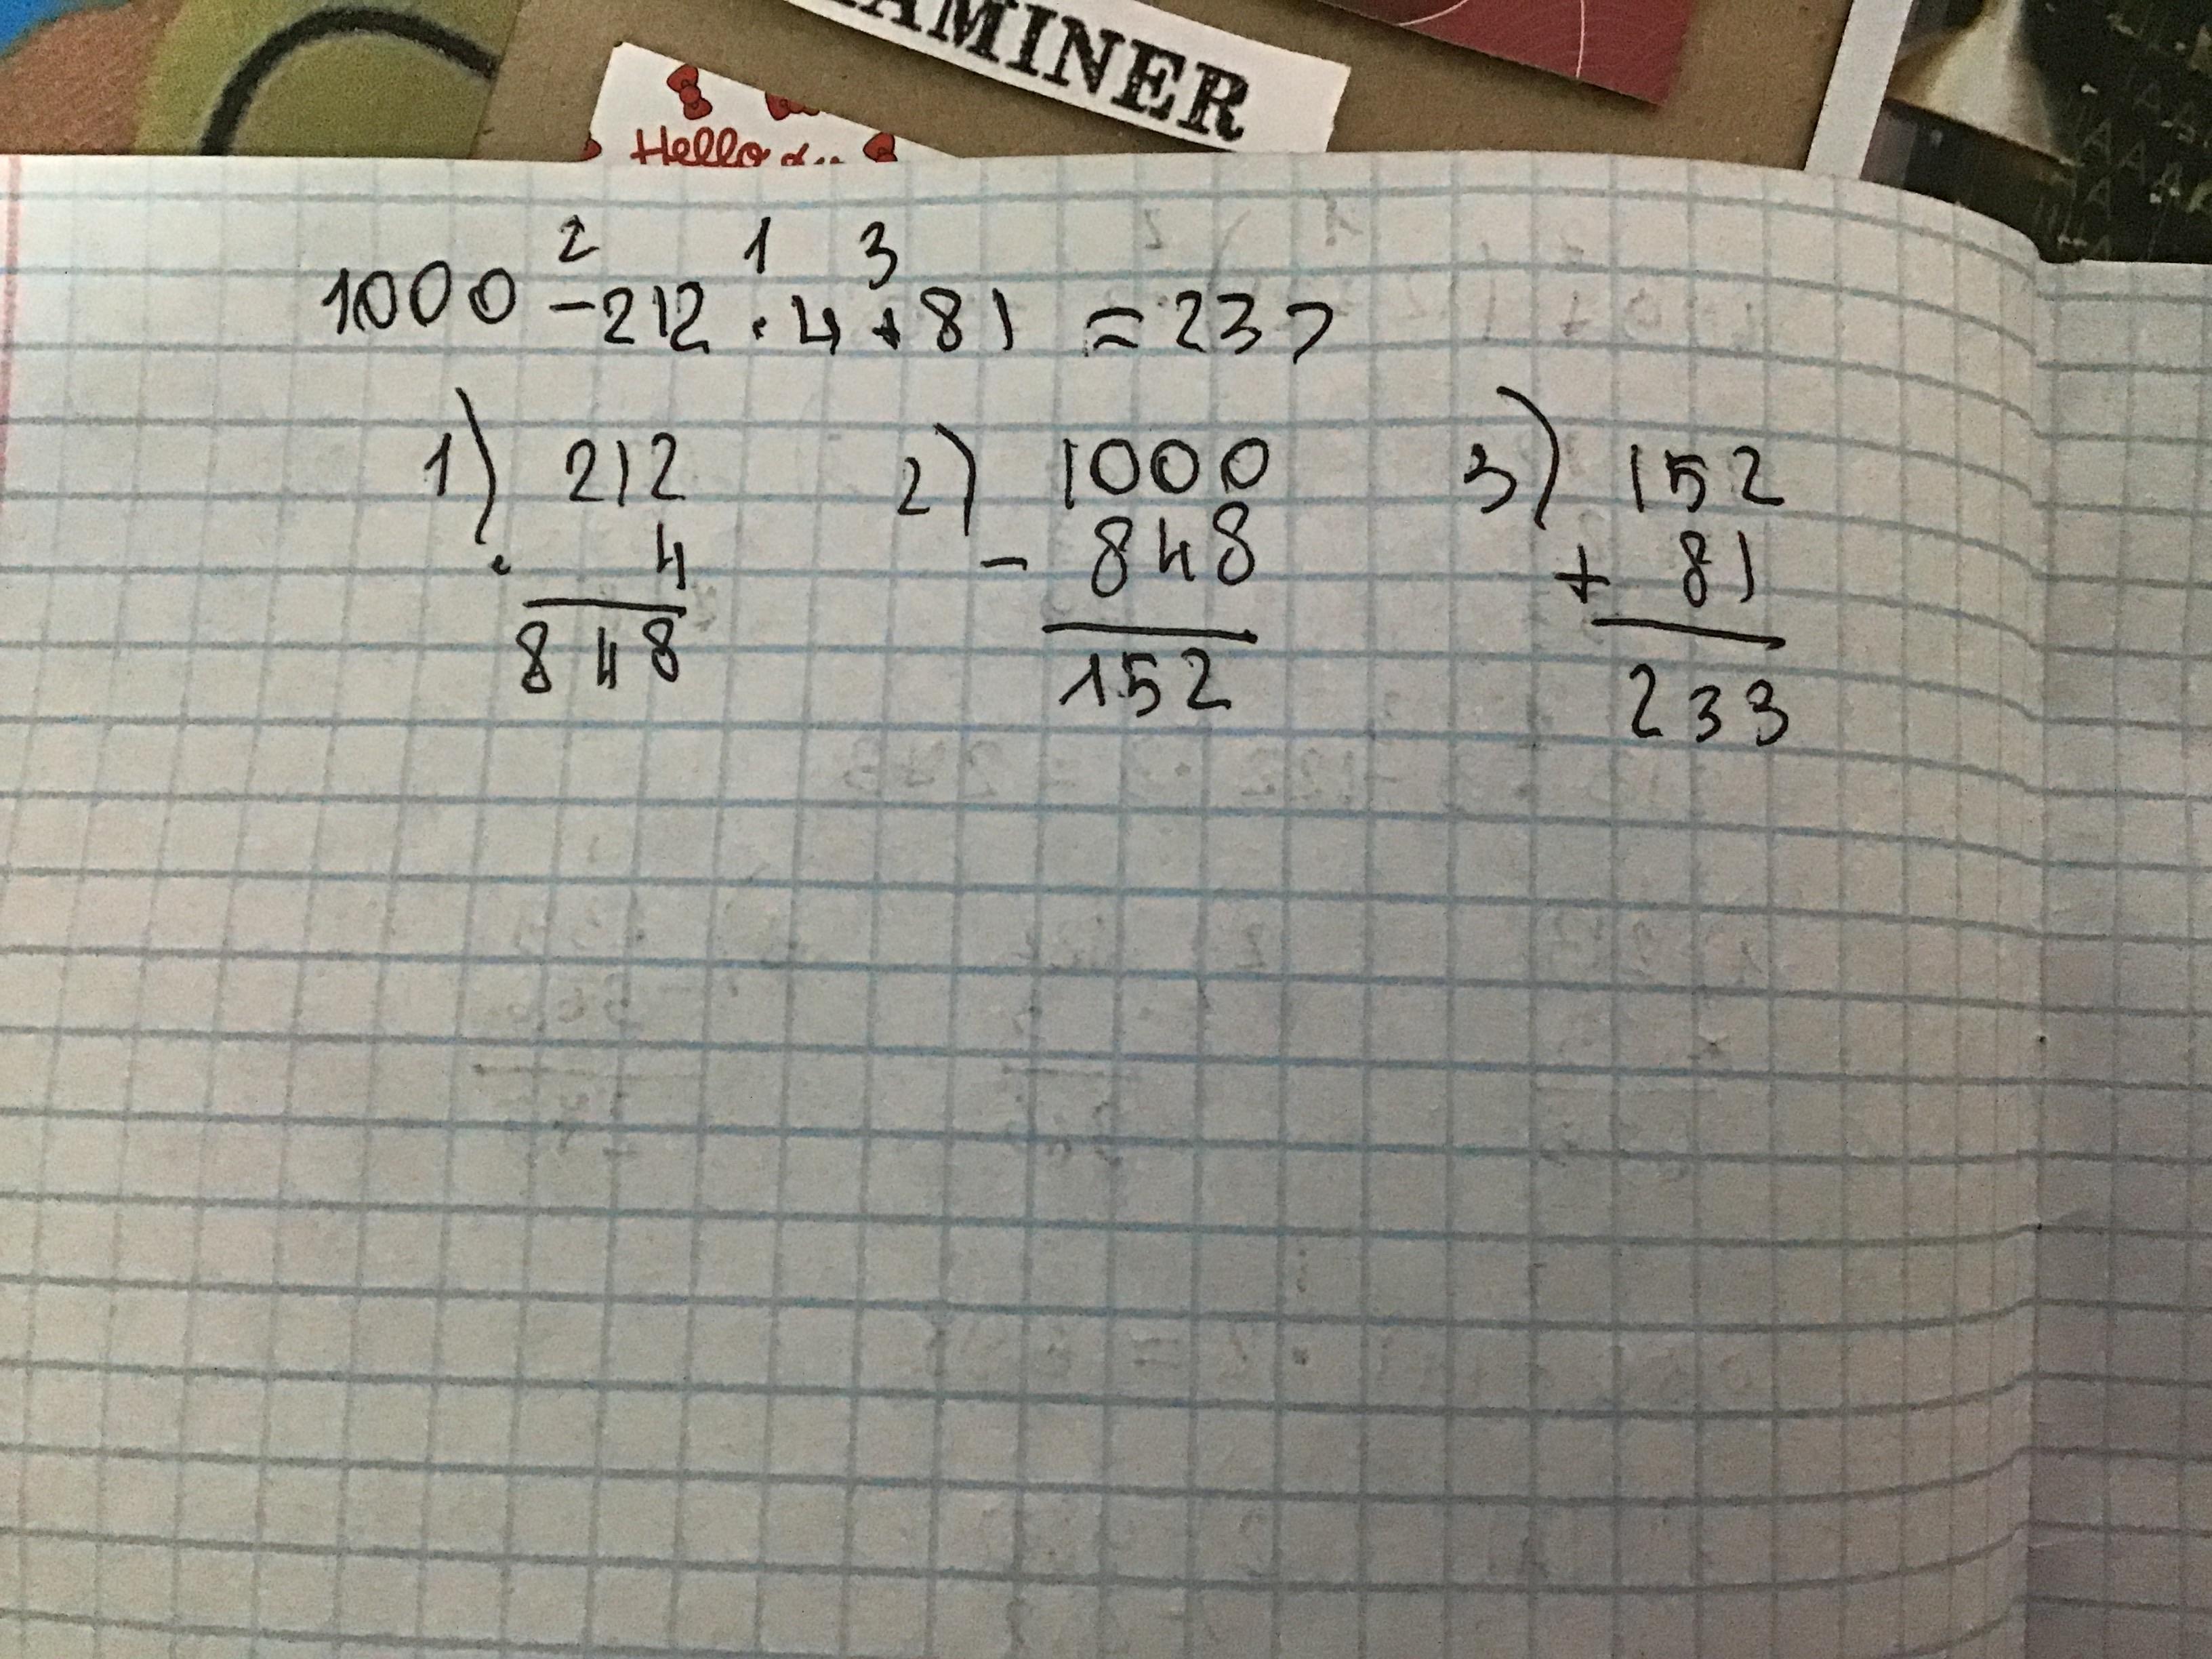 AMINER
Hello
2 1 3
1000 - 212 · 4 + 81 = 233
1) 212 2) 1000 3) 152
· 4 - 848 + 81
848 152 233